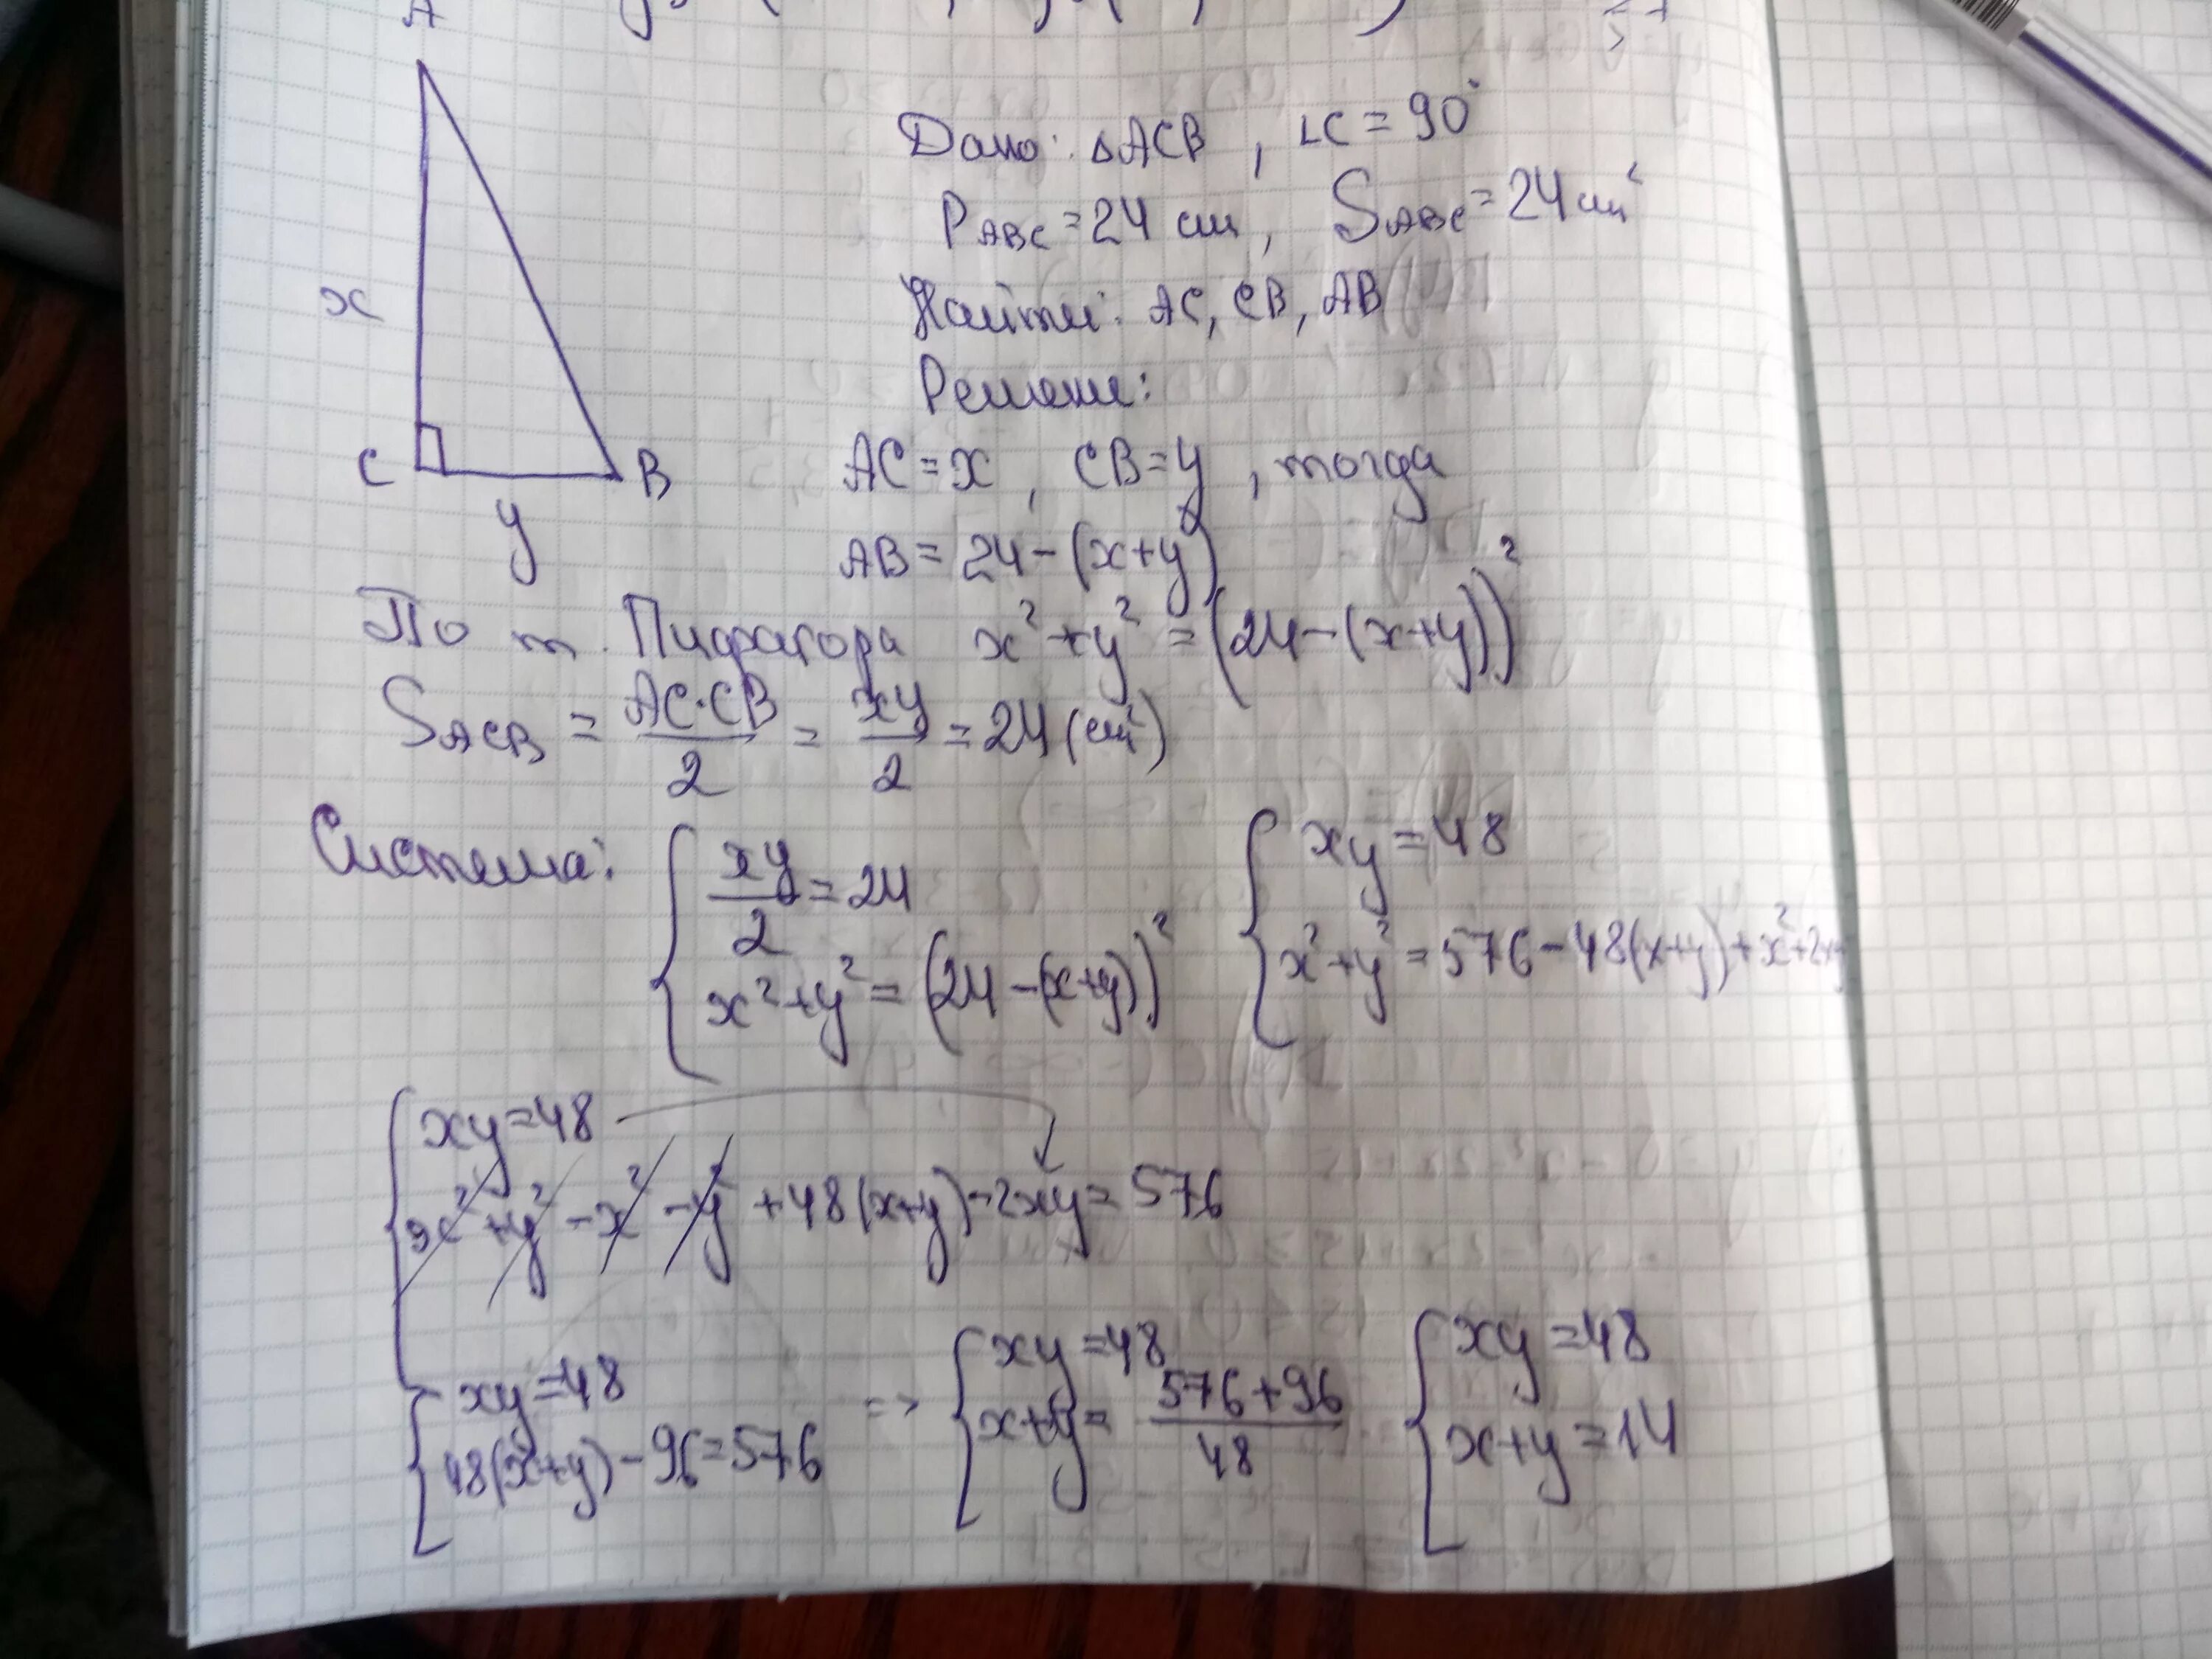 A
Дано: △ACB, ∠C = 90°
P ABC = 24 см, S ABC = 24 см²
Найти: AC, CB, AB
x
Решение:
C
B
AC = x, CB = y, тогда
y
AB = 24 - (x+y)
По т. Пифагора x² + y² = (24 - (x+y))²
S ACB = AC·CB/2 = xy/2 = 24 (см²)
Система: { xy/2 = 24 { xy = 48
x² + y² = (24 - (x+y))² x² + y² = 576 - 48(x+y) + x² + 2xy
{ xy = 48
x² + y² - x² - y² + 48(x+y) - 2xy = 576
{ xy = 48 => { xy = 48 { xy = 48
48(x+y) - 96 = 576 x+y = 576+96/48 x+y = 14